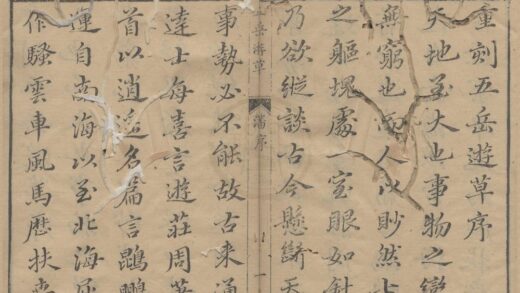 重刻五岳遊草序
天地至大也事物之變
無窮也而人以眇然七
之軀塊處一室眼如針
乃欲縱談古今懸斷天
岳遊草 潘序 一
事勢必不能故古來通
達士每喜言遊莊周
首以逍遙名篇言鵾鵬
運自南海以至北海屈
作騷雲車風馬歷扶桑